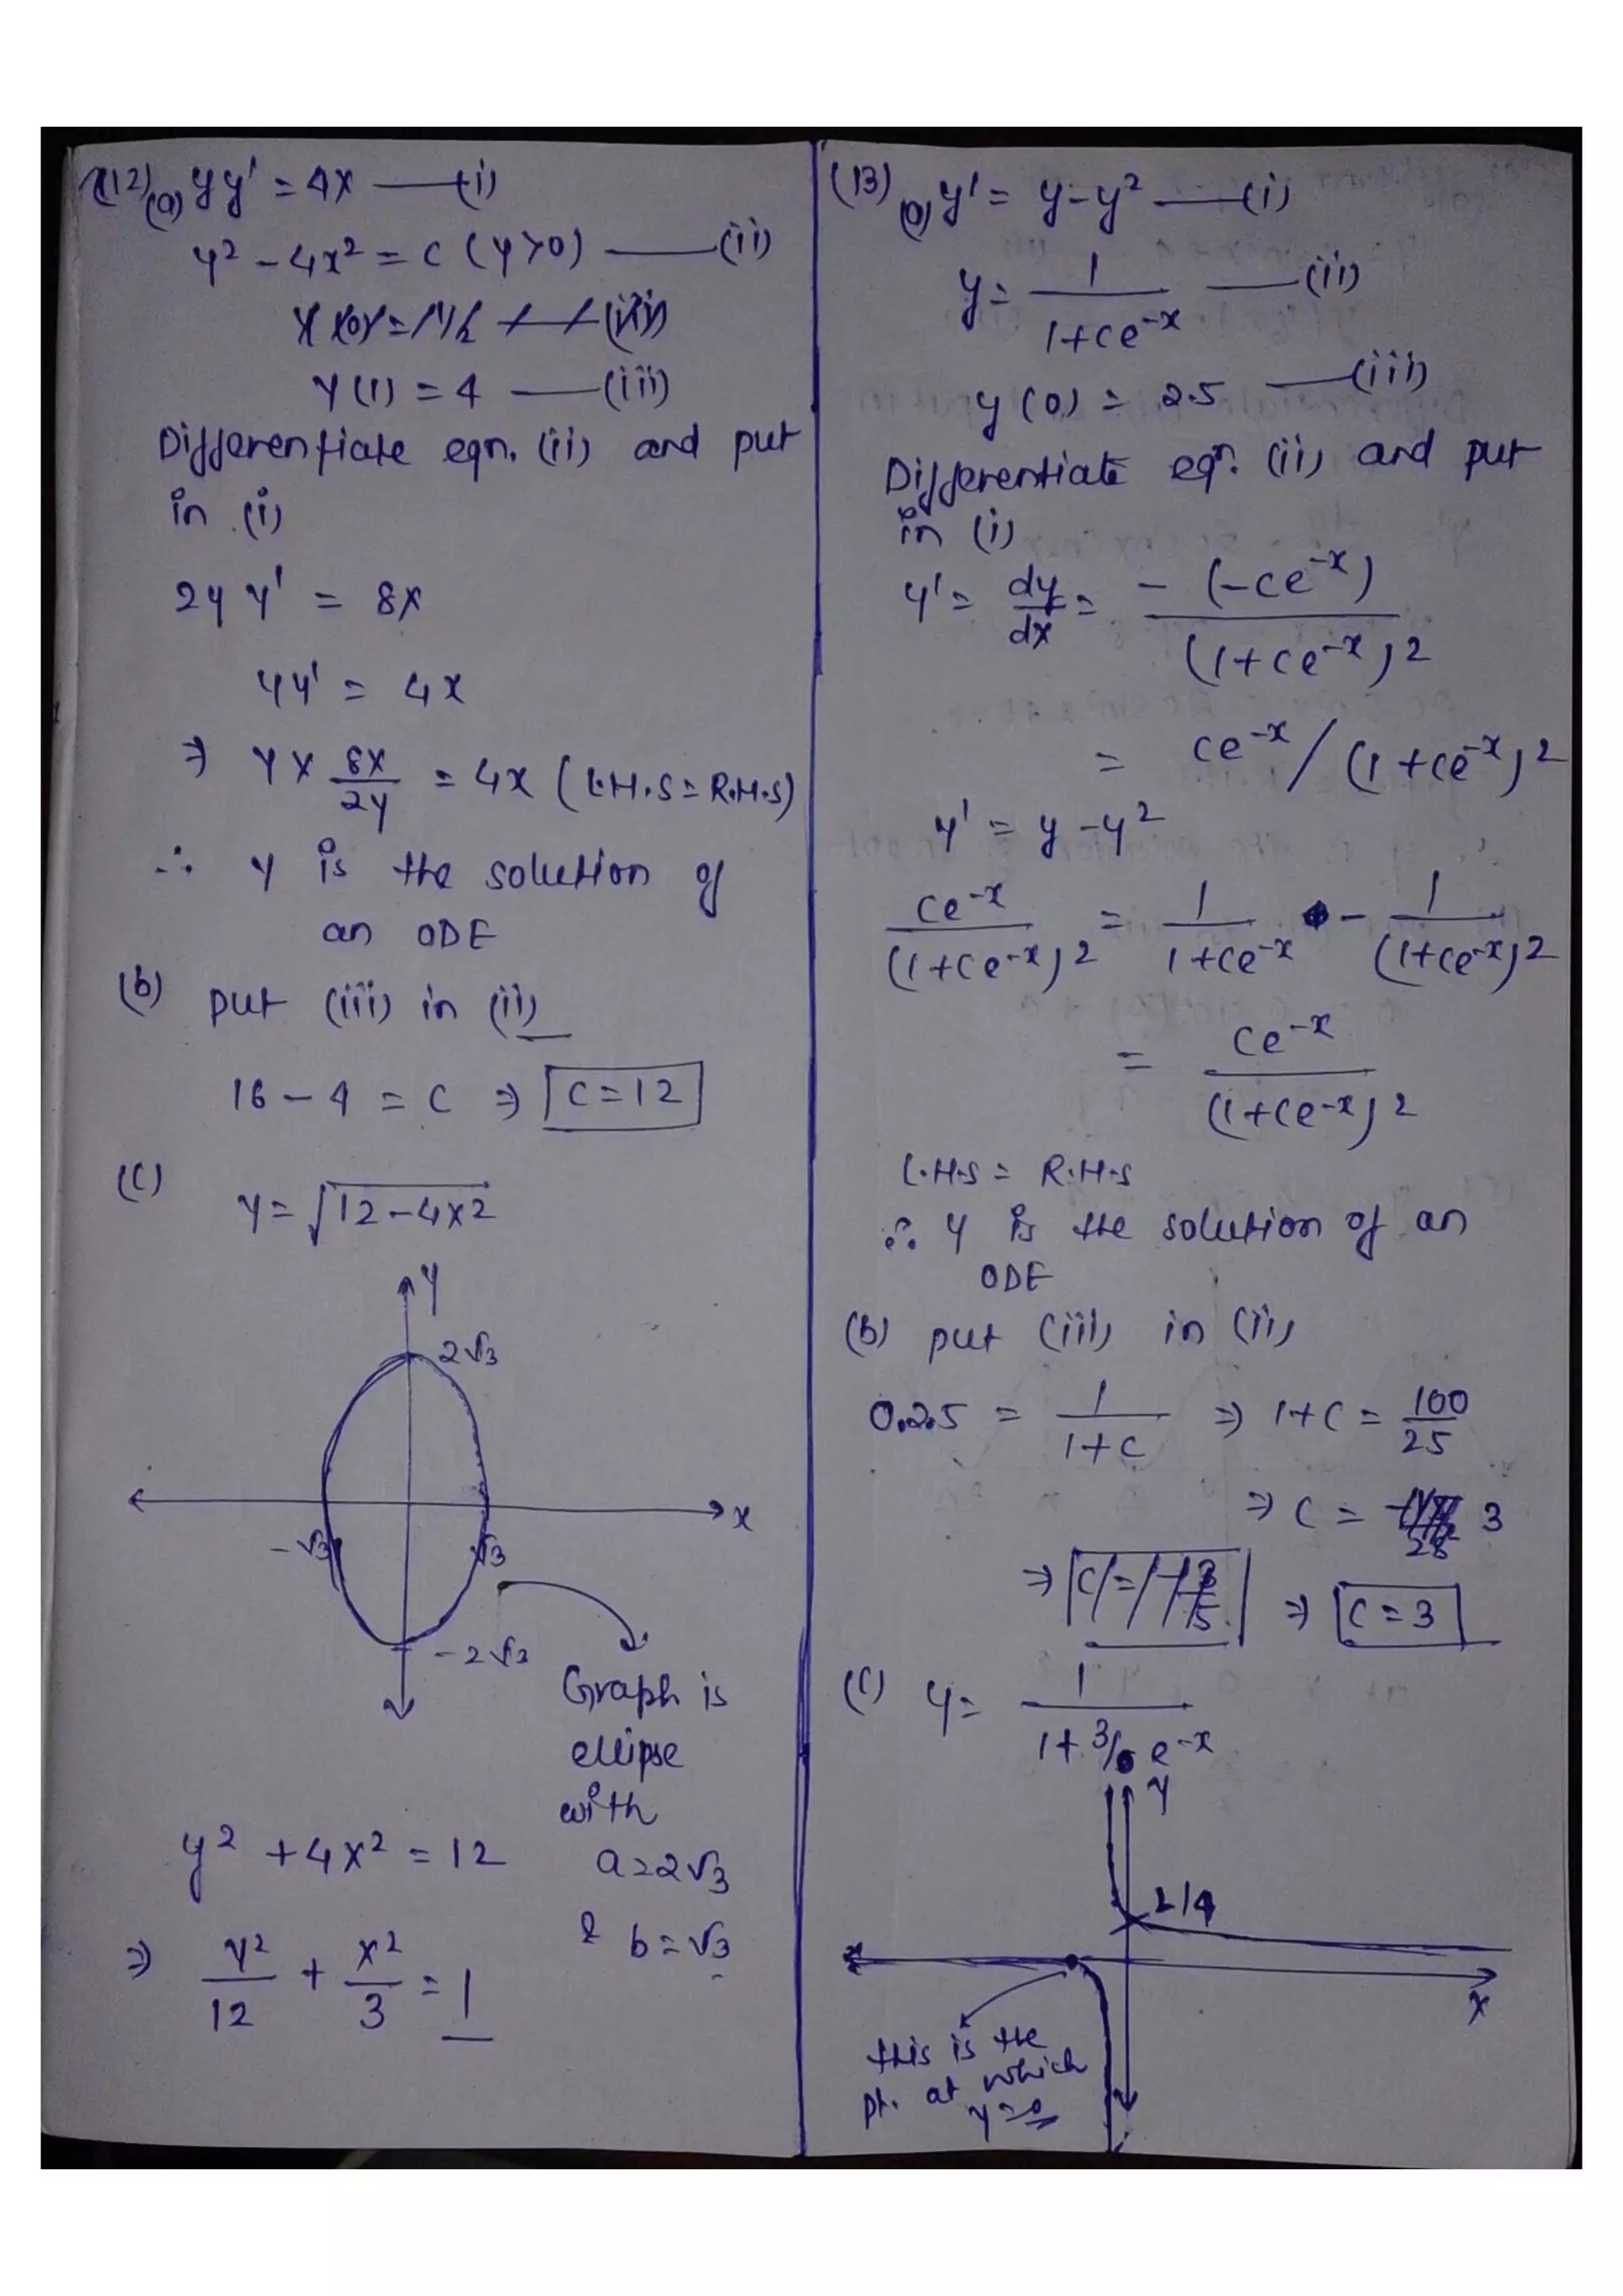 (12) (a) yy' = 4x —(i)
y² - 4x² = c (y>0) —(ii)
y(1) = 4 —(iii)
Differentiate eqn. (ii) and put
in (i)
2y y' = 8x
yy' = 4x
⇒ y × 8x/2y = 4x (L.H.S = R.H.S)
∴ y is the solution of
an ODE
(b) put (iii) in (ii)
16 - 4 = c ⇒ c = 12
(c)
y = √12-4x2
y
2√3
x
-√3
√3
-2√3
Graph is
ellipse
with
a=2√3
& b=√3
y² + 4x² = 12
⇒ y²/12 + x²/3 = 1
(13) (a) y' = y-y² —(i)
y = 1/1+ce^-x —(ii)
y(0) = 2.5 —(iii)
Differentiate eqn. (ii) and put
in (i)
y' = dy/dx = -(-ce^-x)/(1+ce^-x)2
= ce^-x/(1+ce^-x)2
y' = y-y²
ce^-x/(1+ce^-x)2 = 1/1+ce^-x - 1/(1+ce^-x)2
= ce^-x/(1+ce^-x)2
L.H.S = R.H.S
∴ y is the solution of an
ODE
(b) put (iii) in (ii)
0.2.5 = 1/1+c ⇒ 1+c = 100/25
⇒ c = 3
⇒ c = 3
(c) y = 1/1+3/ e^-x
y
x
this is the
pt. at which
y=0